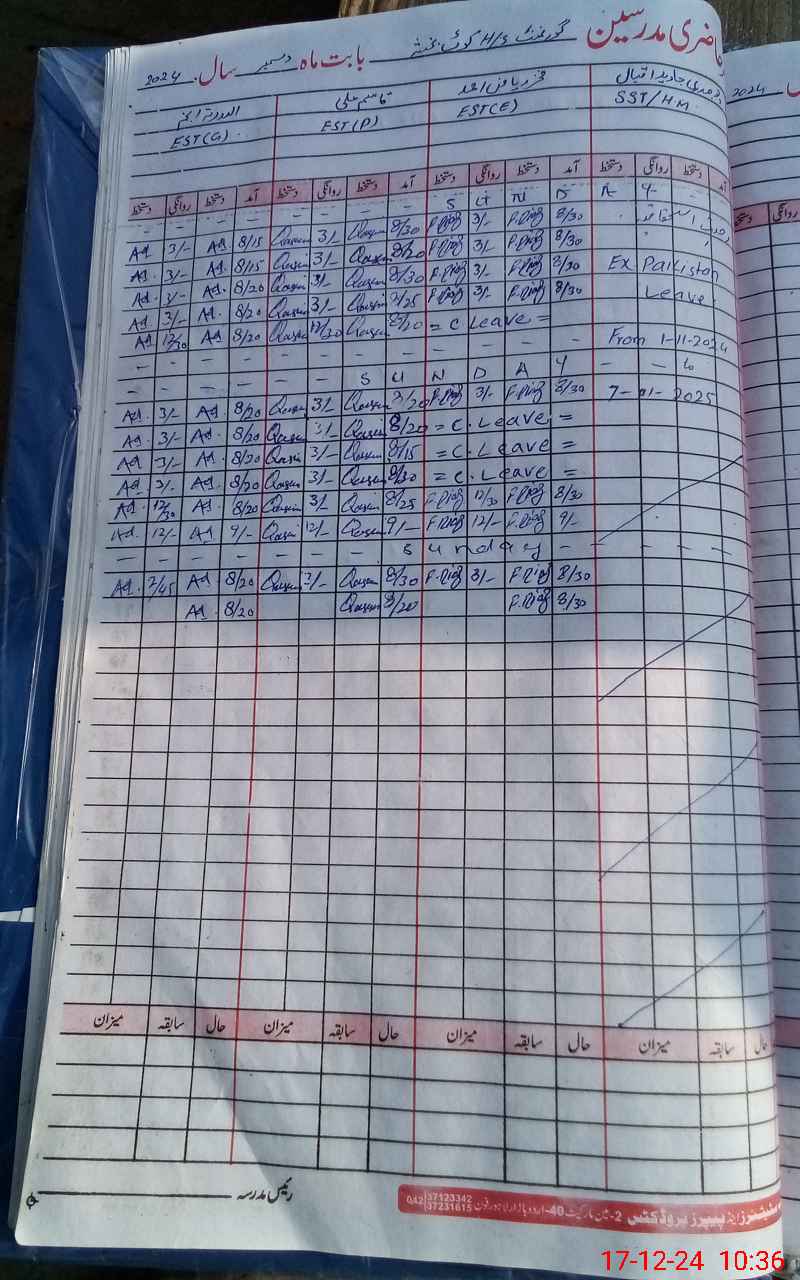 حاضری مدرسین گورنمنٹ H/S کوٹ بخش بابت ماہ دسمبر سال 2024
2024
جاوید اقبال فخر ریاض احمد قاسم علی
SST/HM EST(E) EST(P) EST(G)
آمد دستخط روانگی دستخط آمد دستخط روانگی دستخط آمد دستخط روانگی دستخط آمد دستخط روانگی دستخط
روانگی
- - - - - - - - S U N D A Y - -
Ad 3/- Ad 8/15 Qasim 3/- Qasim 8/30 F.Riaz 3/- F.Riaz 8/30
Ad 3/- Ad 8/15 Qasim 3/- Qasim 8/20 F.Riaz 3/- F.Riaz 8/30
Ad 3/- Ad 8/20 Qasim 3/- Qasim 8/30 F.Riaz 3/- F.Riaz 8/30 Ex. Pakistan
Ad 3/- Ad 8/20 Qasim 3/- Qasim 8/25 F.Riaz 3/- F.Riaz 8/30 Leave
Ad 12/30 Ad 8/20 Qasim 12/30 Qasim 8/20 = C Leave =
From 1-11-2024
- - - - - - - - - - - - to
- - - - - - S U N D A Y
Ad. 3/- Ad 8/20 Qasim 3/- Qasim 8/20 F.Riaz 3/- F.Riaz 8/30 7-01-2025
Ad. 3/- Ad. 8/20 Qasim 3/- Qasim 8/20 = C. Leave =
Ad 3/- Ad 8/20 Qasim 3/- Qasim 8/15 = C. Leave =
Ad 3/- Ad. 8/20 Qasim 3/- Qasim 8/30 = C. Leave =
Ad. 12/30 Ad. 8/20 Qasim 3/- Qasim 8/25 F.Riaz 12/30 F.Riaz 8/30
Ad. 12/- Ad 9/- Qasim 12/- Qasim 9/- F.Riaz 12/- F.Riaz 9/-
- - - - - - - S u n d a y - - - - -
Ad. 2/45 Ad 8/20 Qasim Qasim 8/30 F.Riaz 3/- F.Riaz 8/30
Ad. 8/20 Qasim 8/20 F.Riaz 8/30
حال سابقہ میزان حال سابقہ میزان حال سابقہ میزان حال سابقہ میزان
رئیس مدرسہ
اینڈ پیپرز پروڈکٹس 2-مین مارکیٹ 40-اردو بازار لاہور فون 042 37123342 37231615
17-12-24 10:36